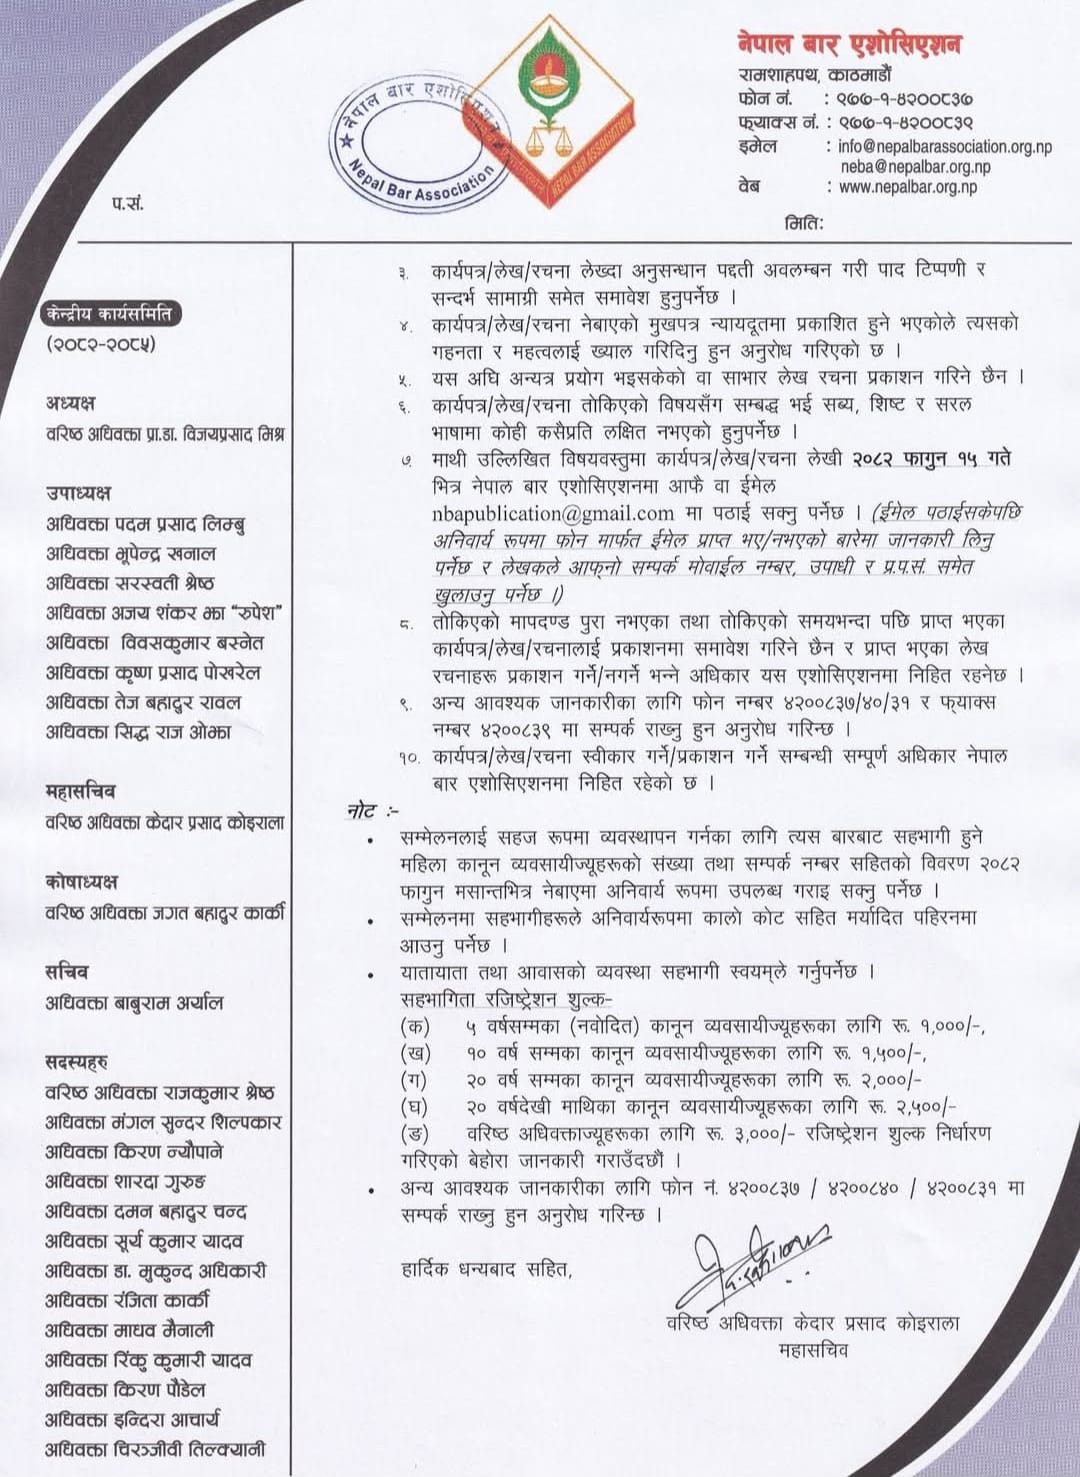 नेपाल बार एशोसिएशन
रामशाहपथ, काठमाडौं
फोन नं. : ९७७-१-४२००८३७
फ्याक्स नं. : ९७७-१-४२००८३९
इमेल : info@nepalbarassociation.org.np
neba@nepalbar.org.np
वेब : www.nepalbar.org.np
नेपाल बार एशोसिएशन
Nepal Bar Association
NEPAL BAR ASSOCIATION
प.सं.
मितिः
केन्द्रीय कार्यसमिति
(२०८२-२०८५)
अध्यक्ष
वरिष्ठ अधिवक्ता प्रा.डा. विजयप्रसाद मिश्र
उपाध्यक्ष
अधिवक्ता पदम प्रसाद लिम्बु
अधिवक्ता भूपेन्द्र खनाल
अधिवक्ता सरस्वती श्रेष्ठ
अधिवक्ता अजय शंकर झा “रुपेश”
अधिवक्ता विवसकुमार बस्नेत
अधिवक्ता कृष्ण प्रसाद पोखरेल
अधिवक्ता तेज बहादुर रावल
अधिवक्ता सिद्ध राज ओझा
महासचिव
वरिष्ठ अधिवक्ता केदार प्रसाद कोइराला
कोषाध्यक्ष
वरिष्ठ अधिवक्ता जगत बहादुर कार्की
सचिव
अधिवक्ता बाबुराम अर्याल
सदस्यहरु
वरिष्ठ अधिवक्ता राजकुमार श्रेष्ठ
अधिवक्ता मंगल सुन्दर शिल्पकार
अधिवक्ता किरण न्यौपाने
अधिवक्ता शारदा गुरुङ
अधिवक्ता दमन बहादुर चन्द
अधिवक्ता सूर्य कुमार यादव
अधिवक्ता डा. मुकुन्द अधिकारी
अधिवक्ता रंजिता कार्की
अधिवक्ता माधव मैनाली
अधिवक्ता रिंकु कुमारी यादव
अधिवक्ता किरण पौडेल
अधिवक्ता इन्दिरा आचार्य
अधिवक्ता चिरञ्जीवी तिल्क्यानी
३. कार्यपत्र/लेख/रचना लेख्दा अनुसन्धान पद्दती अवलम्बन गरी पाद टिप्पणी र
सन्दर्भ सामाग्री समेत समावेश हुनुपर्नेछ ।
४. कार्यपत्र/लेख/रचना नेबाएको मुखपत्र न्यायदूतमा प्रकाशित हुने भएकोले त्यसको
गहनता र महत्वलाई ख्याल गरिदिनु हुन अनुरोध गरिएको छ ।
५. यस अघि अन्यत्र प्रयोग भइसकेको वा साभार लेख रचना प्रकाशन गरिने छैन ।
६. कार्यपत्र/लेख/रचना तोकिएको विषयसँग सम्बद्ध भई सब्य, शिष्ट र सरल
भाषामा कोही कसैप्रति लक्षित नभएको हुनुपर्नेछ ।
७. माथी उल्लिखित विषयवस्तुमा कार्यपत्र/लेख/रचना लेखी २०८२ फागुन १५ गते
भित्र नेपाल बार एशोसिएशनमा आफै वा ईमेल
nbapublication@gmail.com मा पठाई सक्नु पर्नेछ । (ईमेल पठाईसकेपछि
अनिवार्य रूपमा फोन मार्फत ईमेल प्राप्त भए/नभएको बारेमा जानकारी लिनु
पर्नेछ र लेखकले आफ्नो सम्पर्क मोवाईल नम्बर, उपाधी र प्र.प.सं. समेत
खुलाउनु पर्नेछ ।)
८. तोकिएको मापदण्ड पुरा नभएका तथा तोकिएको समयभन्दा पछि प्राप्त भएका
कार्यपत्र/लेख/रचनालाई प्रकाशनमा समावेश गरिने छैन र प्राप्त भएका लेख
रचनाहरू प्रकाशन गर्ने/नगर्ने भन्ने अधिकार यस एशोसिएशनमा निहित रहनेछ ।
९. अन्य आवश्यक जानकारीका लागि फोन नम्बर ४२००८३७/४०/३१ र फ्याक्स
नम्बर ४२००८३९ मा सम्पर्क राख्नु हुन अनुरोध गरिन्छ ।
१०. कार्यपत्र/लेख/रचना स्वीकार गर्ने/प्रकाशन गर्ने सम्बन्धी सम्पूर्ण अधिकार नेपाल
बार एशोसिएशनमा निहित रहेको छ ।
नोट :-
• सम्मेलनलाई सहज रूपमा व्यवस्थापन गर्नका लागि त्यस बारबाट सहभागी हुने
महिला कानून व्यवसायीज्यूहरूको संख्या तथा सम्पर्क नम्बर सहितको विवरण २०८२
फागुन मसान्तभित्र नेबाएमा अनिवार्य रूपमा उपलब्ध गराइ सक्नु पर्नेछ ।
• सम्मेलनमा सहभागीहरूले अनिवार्यरूपमा कालो कोट सहित मर्यादित पहिरनमा
आउनु पर्नेछ ।
• यातायाता तथा आवासको व्यवस्था सहभागी स्वयम्ले गर्नुपर्नेछ ।
सहभागिता रजिष्ट्रेशन शुल्क-
(क) ५ वर्षसम्मका (नवोदित) कानून व्यवसायीज्यूहरूका लागि रू. १,०००/-,
(ख) १० वर्ष सम्मका कानून व्यवसायीज्यूहरूका लागि रू. १,५००/-,
(ग) २० वर्ष सम्मका कानून व्यवसायीज्यूहरूका लागि रू. २,०००/-
(घ) २० वर्षदेखी माथिका कानून व्यवसायीज्यूहरूका लागि रू. २,५००/-
(ङ) वरिष्ठ अधिवक्ताज्यूहरूका लागि रू. ३,०००/- रजिष्ट्रेशन शुल्क निर्धारण
गरिएको बेहोरा जानकारी गराउँदछौं ।
• अन्य आवश्यक जानकारीका लागि फोन नं. ४२००८३७ / ४२००८४० / ४२००८३१ मा
सम्पर्क राख्नु हुन अनुरोध गरिन्छ ।
हार्दिक धन्यबाद सहित,
वरिष्ठ अधिवक्ता केदार प्रसाद कोइराला
महासचिव